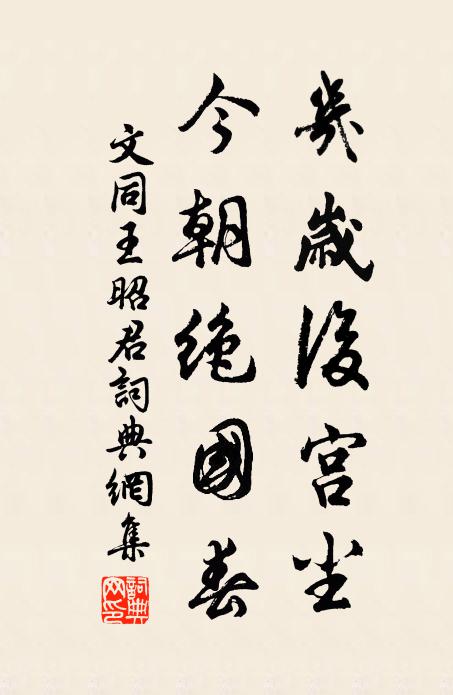 幾歲後宮尘
今朝絶國春
文同王昭君詞典網集
詞典
网印